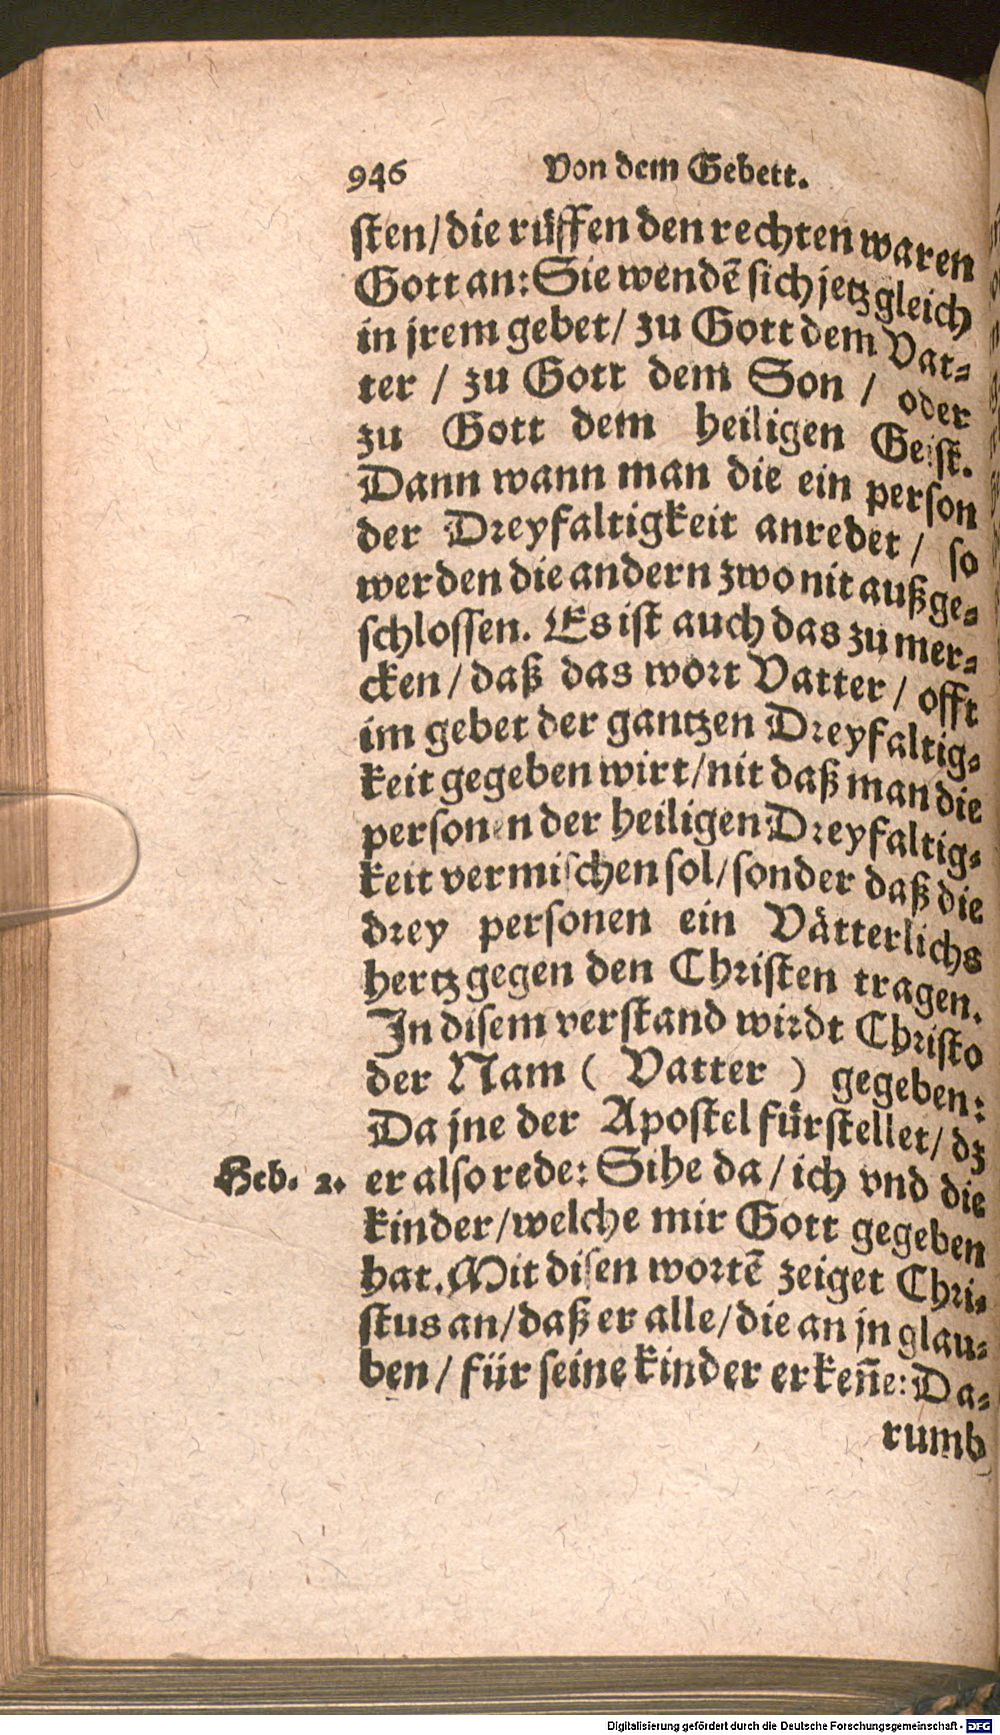 946 Von dem Gebett.
ſten/die rüffen den rechten waren
Gott an: Sie wendē ſich jetz gleich
in jrem gebet/ zu Gott dem Vat⸗
ter / zu Gott dem Son / oder
zu Gott dem heiligen Geiſt.
Dann wann man die ein perſon
der Dreyfaltigkeit anredet / ſo
werden die andern zwo nit außge⸗
ſchloſſen. Es iſt auch das zu mer⸗
cken / daß das wort Vatter / offt
im gebet der gantzen Dreyfaltig⸗
keit gegeben wirt/nit daß man die
perſonen der heiligen Dreyfaltig⸗
keit vermiſchen ſol/ſonder daß die
drey perſonen ein Vaͤtterlichs
hertz gegen den Chriſten tragen.
In diſem verſtand wirdt Chriſto
der Nam ( Vatter ) gegeben:
Da jne der Apoſtel fürſtellet/ dz
Heb. 2. er alſo rede: Sihe da / ich vnd die
kinder/welche mir Gott gegeben
hat. Mit diſen wortē zeiget Chri⸗
ſtus an/daß er alle/die an jn glau⸗
ben / für ſeine kinder erkeñe: Da⸗
rumb
Digitalisierung gefördert durch die Deutsche Forschungsgemeinschaft - DFG